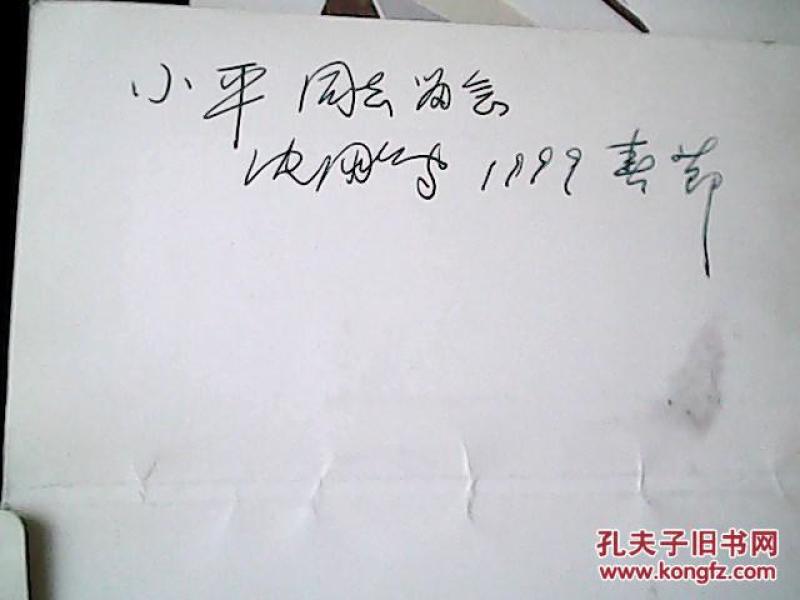 小平同志留念
沈 1999春节
孔夫子旧书网
www.kongfz.com